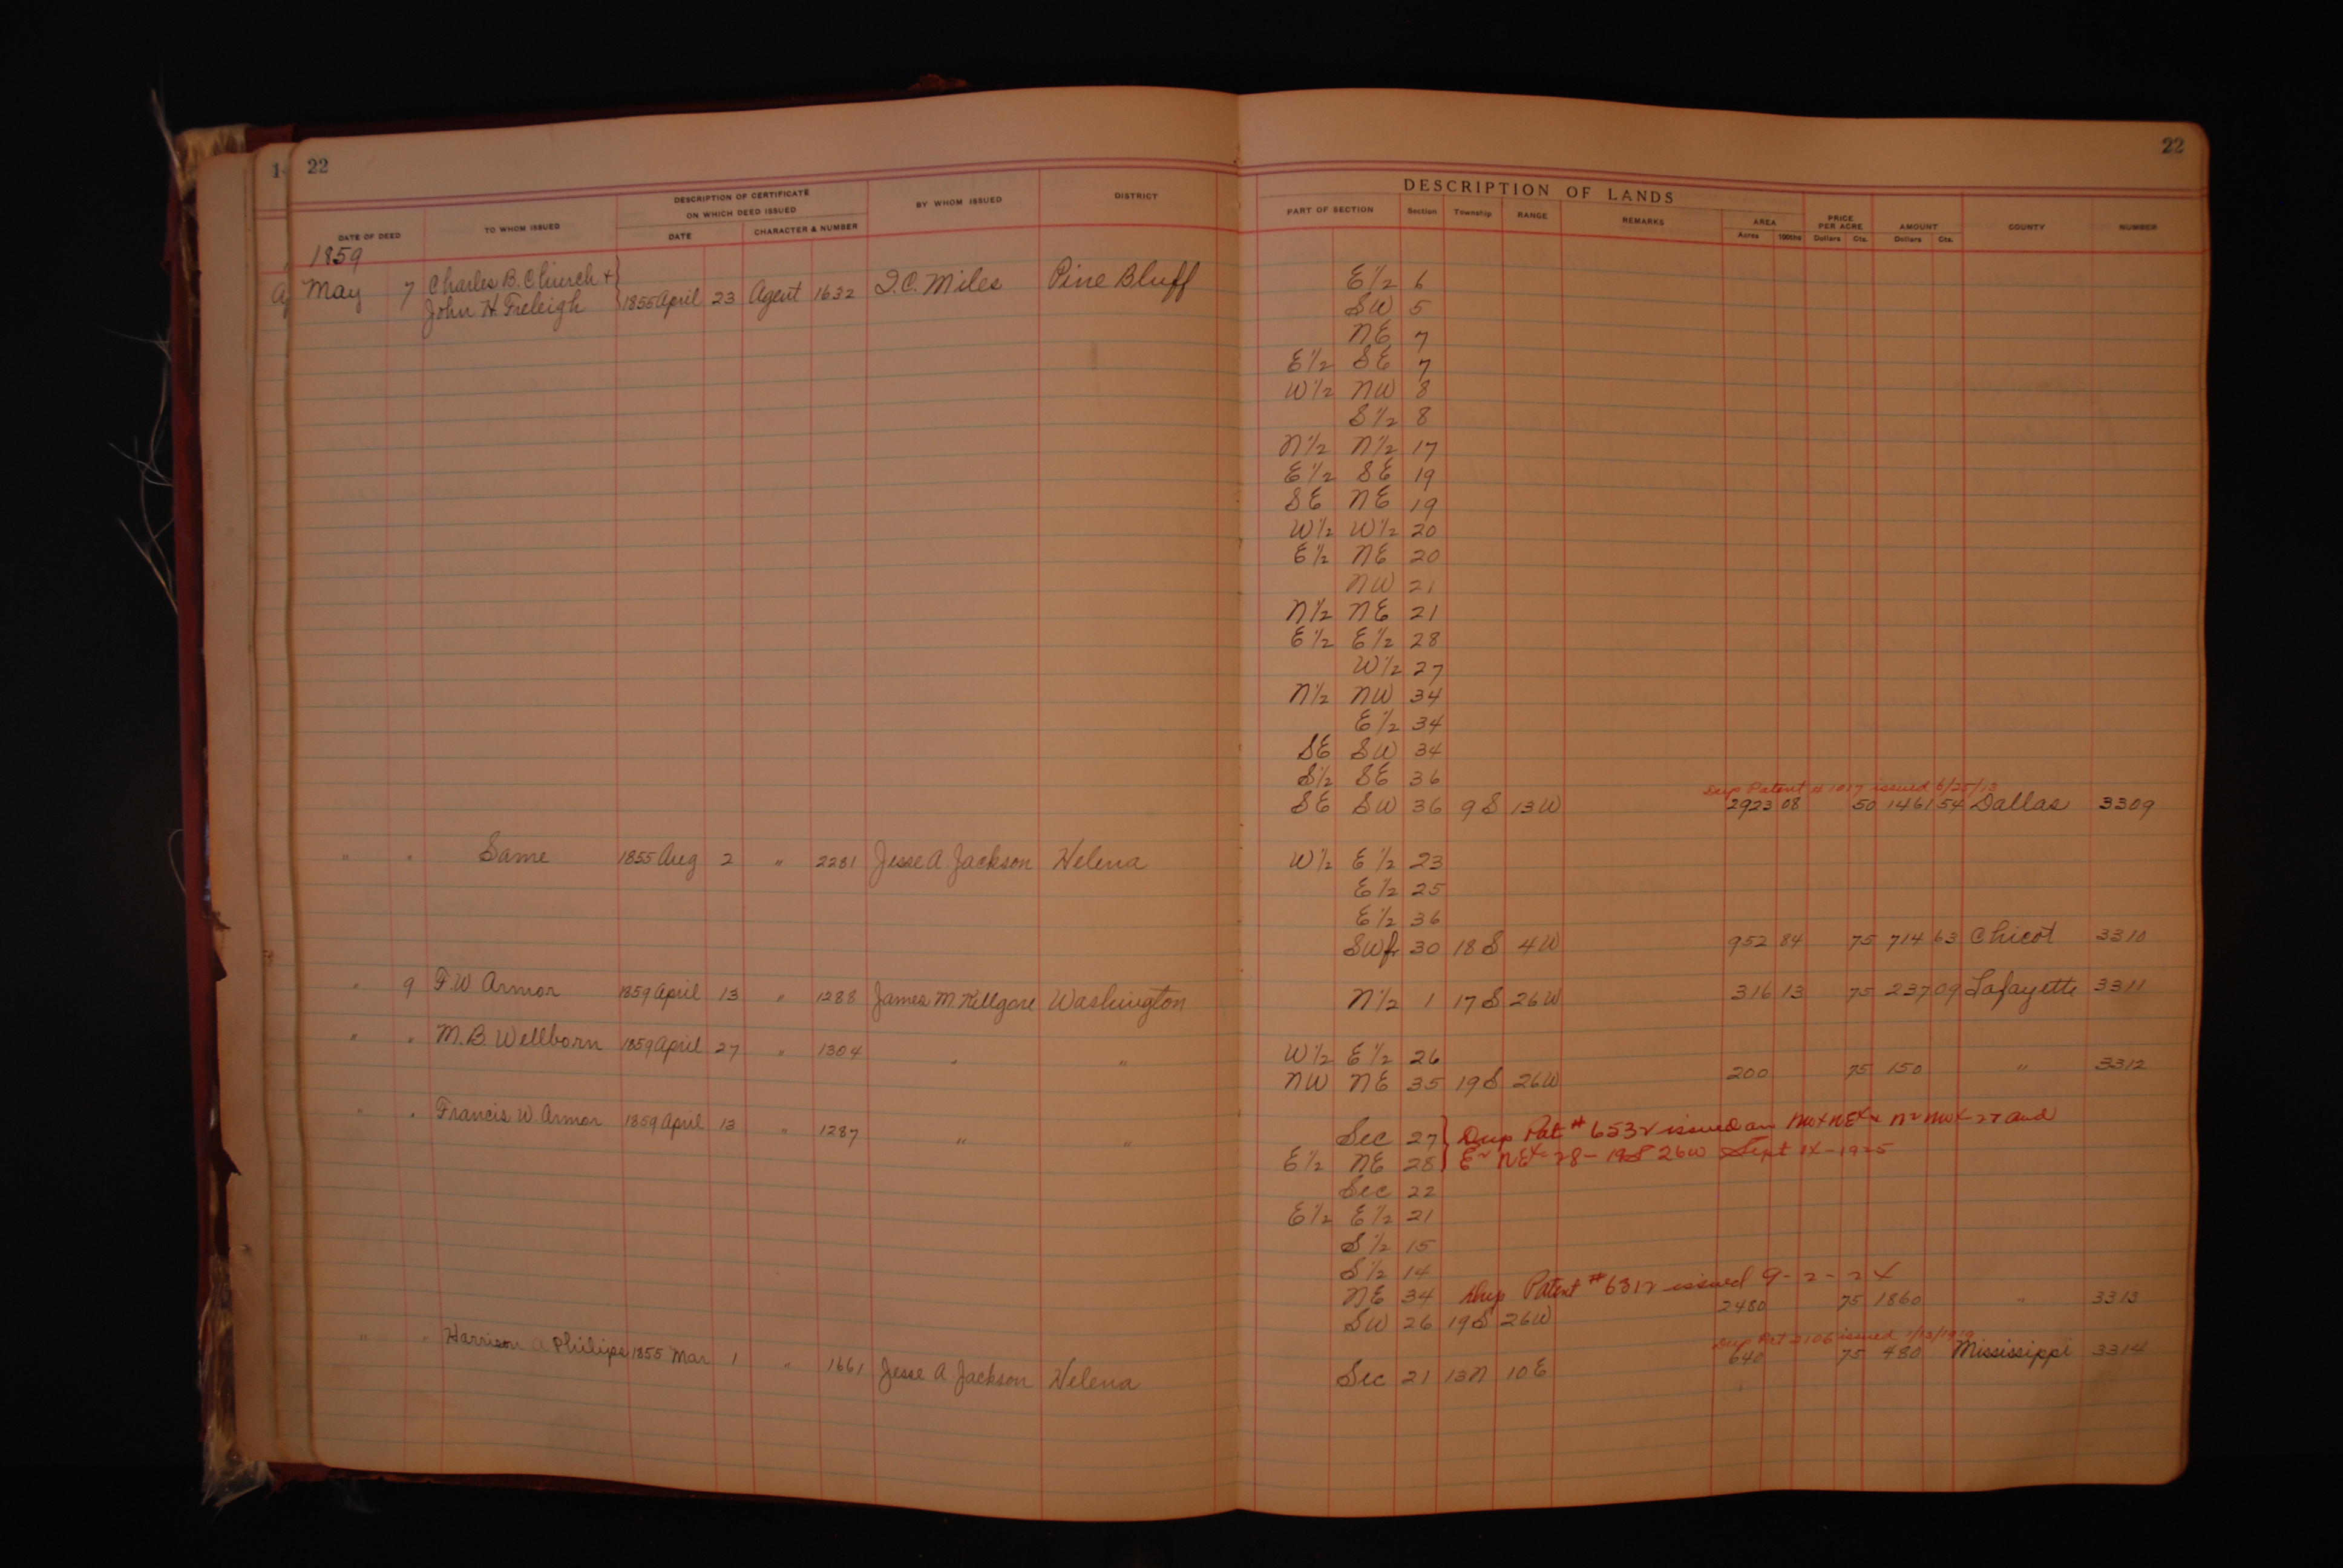 22
DESCRIPTION OF CERTIFICATE
ON WHICH DEED ISSUED
DATE OF DEED TO WHOM ISSUED DATE CHARACTER & NUMBER BY WHOM ISSUED DISTRICT
22
DESCRIPTION OF LANDS
PART OF SECTION Section Township RANGE REMARKS AREA Acres 100ths PRICE PER ACRE Dollars Cts. AMOUNT Dollars Cts. COUNTY NUMBER
1859
May 7 Charles B. Church + John H. Freleigh 1855 April 23 Agent 1632 I.C. Miles Pine Bluff E 1/2 6
SW 5
NE 7
E 1/2 SE 7
W 1/2 NW 8
S 1/2 8
N 1/2 N 1/2 17
E 1/2 SE 19
SE NE 19
W 1/2 W 1/2 20
E 1/2 NE 20
NW 21
N 1/2 NE 21
E 1/2 E 1/2 28
W 1/2 27
N 1/2 NW 34
E 1/2 34
SE SW 34
S 1/2 SE 36
Dup Patent # 1017 issued 6/25/13
SE SW 36 9 S 13 W 2923 08 50 1461 54 Dallas 3309
" " Same 1855 Aug 2 " 2281 Jesse A. Jackson Helena W 1/2 E 1/2 23
E 1/2 25
E 1/2 36
SW fr 30 18 S 4 W 952 84 75 714 63 Chicot 3310
" 9 F.W Armor 1859 April 13 " 1288 James M. Killgore Washington N 1/2 1 17 S 26 W 316 13 75 237 09 Lafayette 3311
" " M.B. Wellborn 1859 April 27 " 1304 " " W 1/2 E 1/2 26
NW NE 35 19 S 26 W 200 75 150 " 3312
" " Francis W Armor 1859 April 13 " 1287 " " Sec 27 Dup Pat # 6532 issued on 27 and
E 1/2 NE 28 28 - 19 S 26 W Sept 1925
Sec 22
E 1/2 E 1/2 21
S 1/2 15
S 1/2 14
NE 34 Dup Patent # 6312 issued 9-2-24
SW 26 19 S 26 W 2480 75 1860 " 3313
Dup Pat 2106 issued 1/13/1919
" " Harrison A Philips 1855 Mar 1 " 1661 Jesse A Jackson Helena Sec 21 13 N 10 E 640 75 480 Mississippi 3314